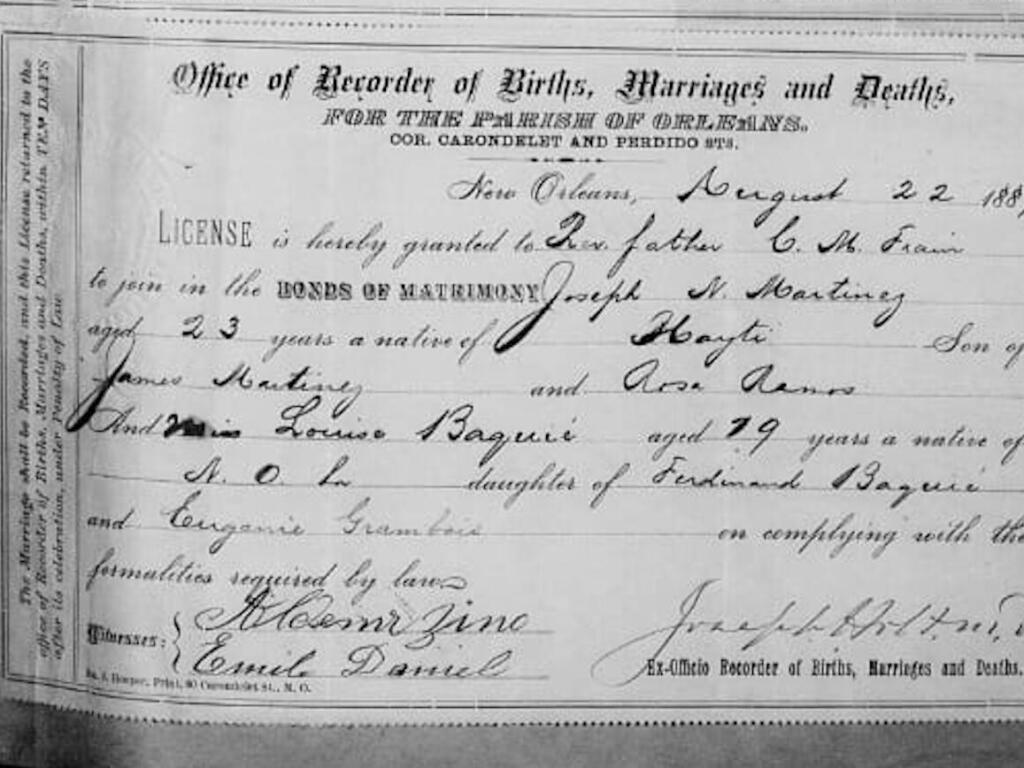 Office of Recorder of Births, Marriages and Deaths,
FOR THE PARISH OF ORLEANS.
COR. CARONDELET AND PERDIDO STS.
New Orleans, August 22 188
LICENSE is hereby granted to Rev. father C. M.
to join in the BONDS OF MATRIMONY Joseph N. Martinez
aged 23 years a native of Hayti Son of
James Martinez and Rosa Ramos
And Miss Louise Baquié aged 19 years a native of
N. O. La daughter of Ferdinand Baquié
and Eugenie Grambois on complying with the
formalities required by law
Witnesses:
Emile Daniel
Joseph Holt M.D
Ex-Officio Recorder of Births, Marriages and Deaths.
Hooper, Print, 80 Carondelet St., N. O.
The Marriage shall be Recorded, and this License returned to the
office of Recorder of Births, Marriages and Deaths, within TEN DAYS
after its celebration, under Penalty of Law.